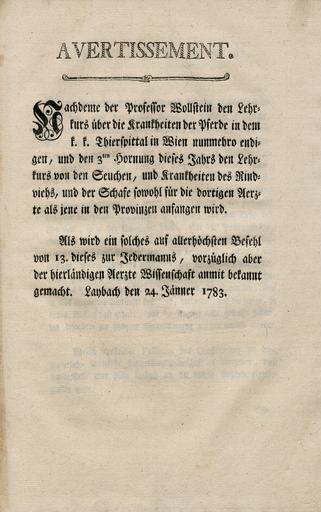 AVERTISSEMENT.
Nachdeme der Professor Wollstein den Lehr-
kurs über die Krankheiten der Pferde in dem
k. k. Thierspittal in Wien nunmehro endi-
gen, und den 3ten Hornung dieses Jahrs den Lehr-
kurs von den Seuchen, und Krankheiten des Rind-
viehs, und der Schafe sowohl für die dortigen Aerz-
te als jene in den Provinzen anfangen wird.
Als wird ein solches auf allerhöchsten Befehl
von 13. dieses zur Jedermanns, vorzüglich aber
der hierländigen Aerzte Wissenschaft anmit bekannt
gemacht. Laybach den 24. Jänner 1783.